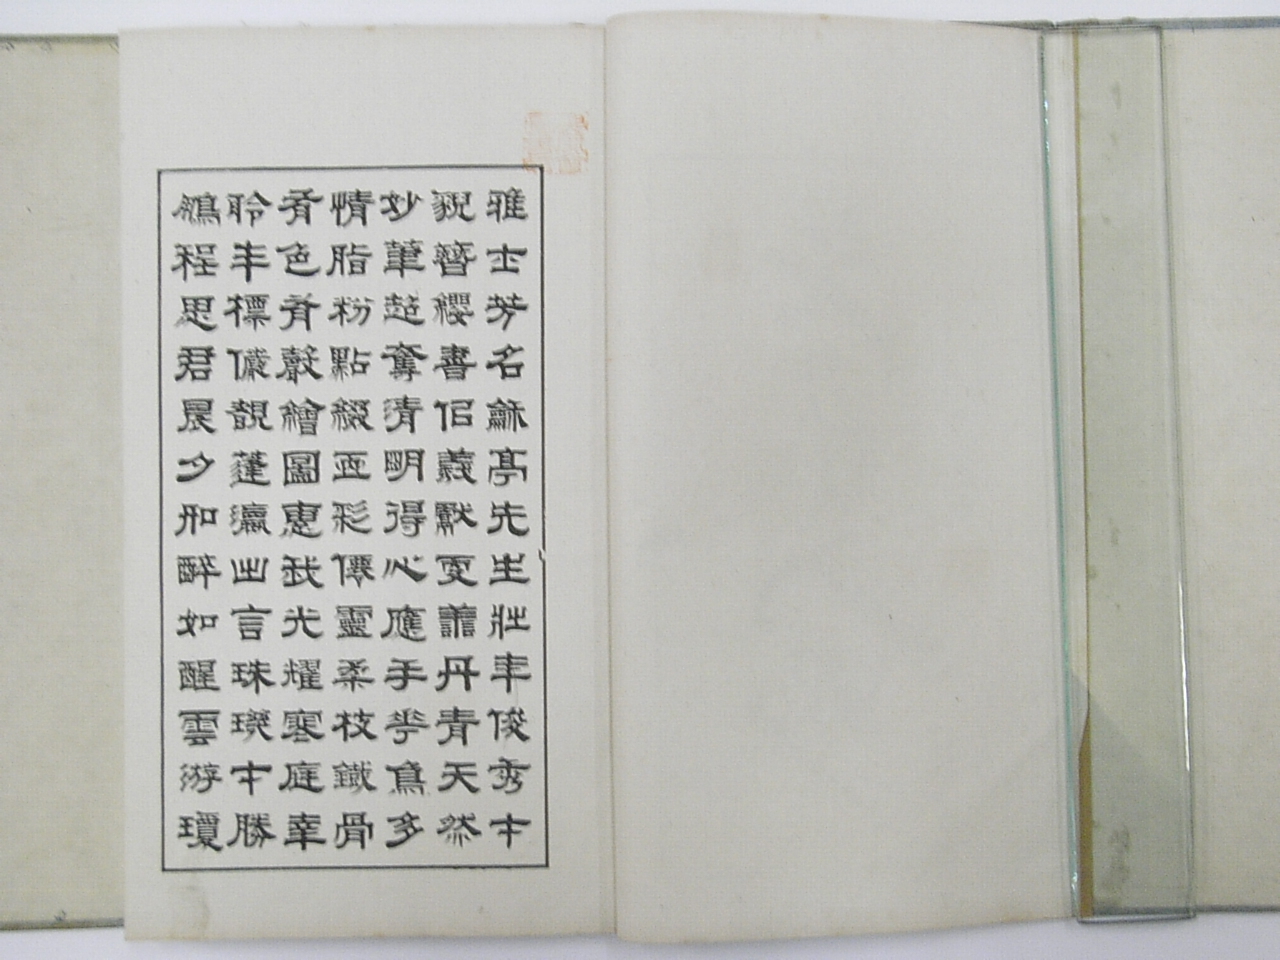 雅士芳名穌亭先生壯年俊秀才
貌簪纓書侶義獻更譫丹青天然
妙筆超奪清明得心應手花鳥多
情脂粉點綴亞彩儇靈柔枝鐵骨
有色有聲繪圖惠我光耀寒庭幸
聆丰標儀靚蓬瀛出言珠璣才勝
鵷程思君晨夕形醉如醒雲游瓊